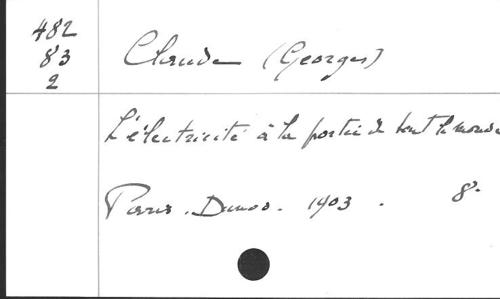 482
83
2
Claude (Georges)
L'électricité à la portée de tout le monde
Paris. Dunod. 1903. 8°